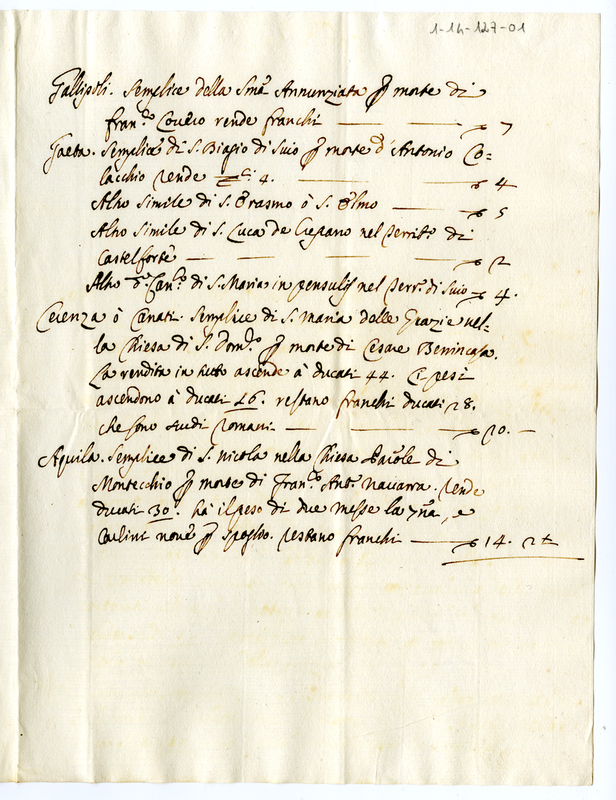 1-14-127-01
Gallipoli. Semplice della Sma Annunziata p morte di
fran.co rende franchi 7
Gaeta. Semplice di S. Biagio di Suio p morte d'Antonio Co=
lacchio rende 4. 4
Altro simile di S. Erasmo ò S. Elmo 5
Altro simile di S. Luca de nel Territ.o di
Castelforte 2
Altro di S. Maria in pensulis nel Terr.o di Suio 4.
ò Cariati. Semplice di S. Maria delle Grazie nel=
la Chiesa di S. Dom.co p morte di Cesare Benincasa.
La rendita in tutto ascende à ducati 44. I pesi
ascendono à ducati 26. restano franchi ducati 18.
che sono scudi Romani 10. —
Aquila. Semplice di S. Nicola nella Chiesa di
Montecchio p morte di Fran.co Ant.o Navarra. rende
ducati 30. hà il peso di due messe la 7na, e
Carlini nove p spoglio. restano franchi 14. 2